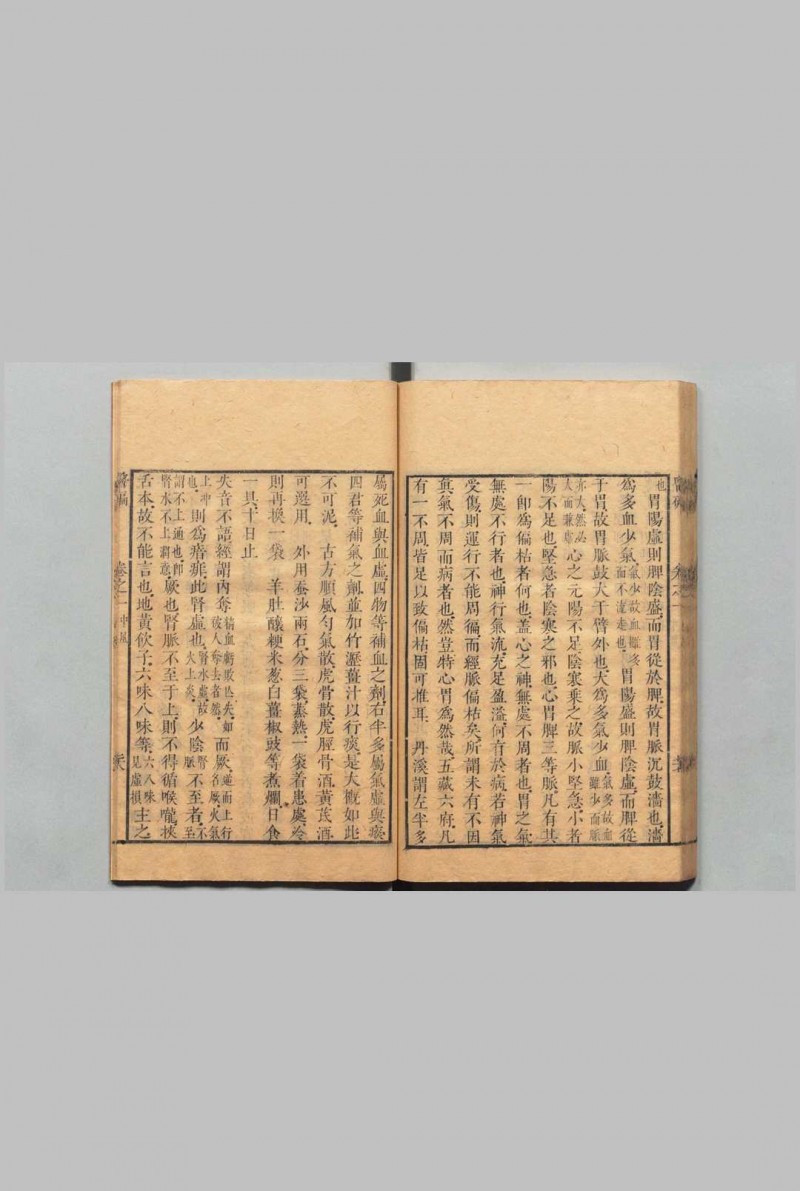 也胃陽虛則脾陰盛而胃從於脾故胃脈沉鼓濇也濇
爲多血少氣氣少故血雖多而不流走也胃陽盛則脾陰虛而脾從
于胃故胃脈鼓大于臂外也大爲多氣少血氣多故血雖少而脈
亦大然必大而兼虛心之元陽不足陰寒乗之故脈小堅急小者
陽不足也堅急者陰寒之邪也心胃脾三等脈凡有其
一卽爲偏枯者何也蓋心之神無處不周者也胃之氣
無處不行者也神行氣流充足盈溢何有於病若神氣
受傷則運行不能周徧而經脈偏枯矣所謂未有不因
真氣不周而病者也然豈特心胃爲然哉五藏六府凡
有一不周皆足以致偏枯固可推耳 丹溪謂左半多
屬死血與血虛四物等補血之劑右半多屬氣虛與痰
四君等補氣之劑並加竹瀝薑汁以行痰是大概如此
不可泥 古方順風勻氣散虎骨散虎脛骨酒黃茋酒
可選用 外用蚕沙兩石分三袋蒸熱一袋着患處冷
則再換一袋 羊肚釀粳米葱白薑椒豉等煮爛日食
一具十日止
失音不語經謂內奪精血虧敗迭失如被人奪去者然而厥逆而上行名厥火氣
上冲也則爲瘖痱此腎虛也腎水虛故火上炎少陰脈不至者腎不至
謂不上通也卽腎水不上澙意厥也腎脈不至于上則不得循喉嚨挾
舌本故不能言也地黃飲子六味八味等六八味見虛損主之
醫碥
卷之一
中風